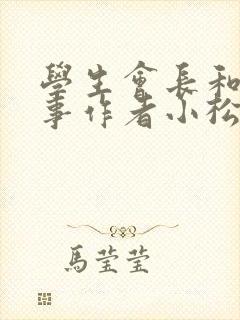 學生會長和
事作者小松
馬瑩瑩